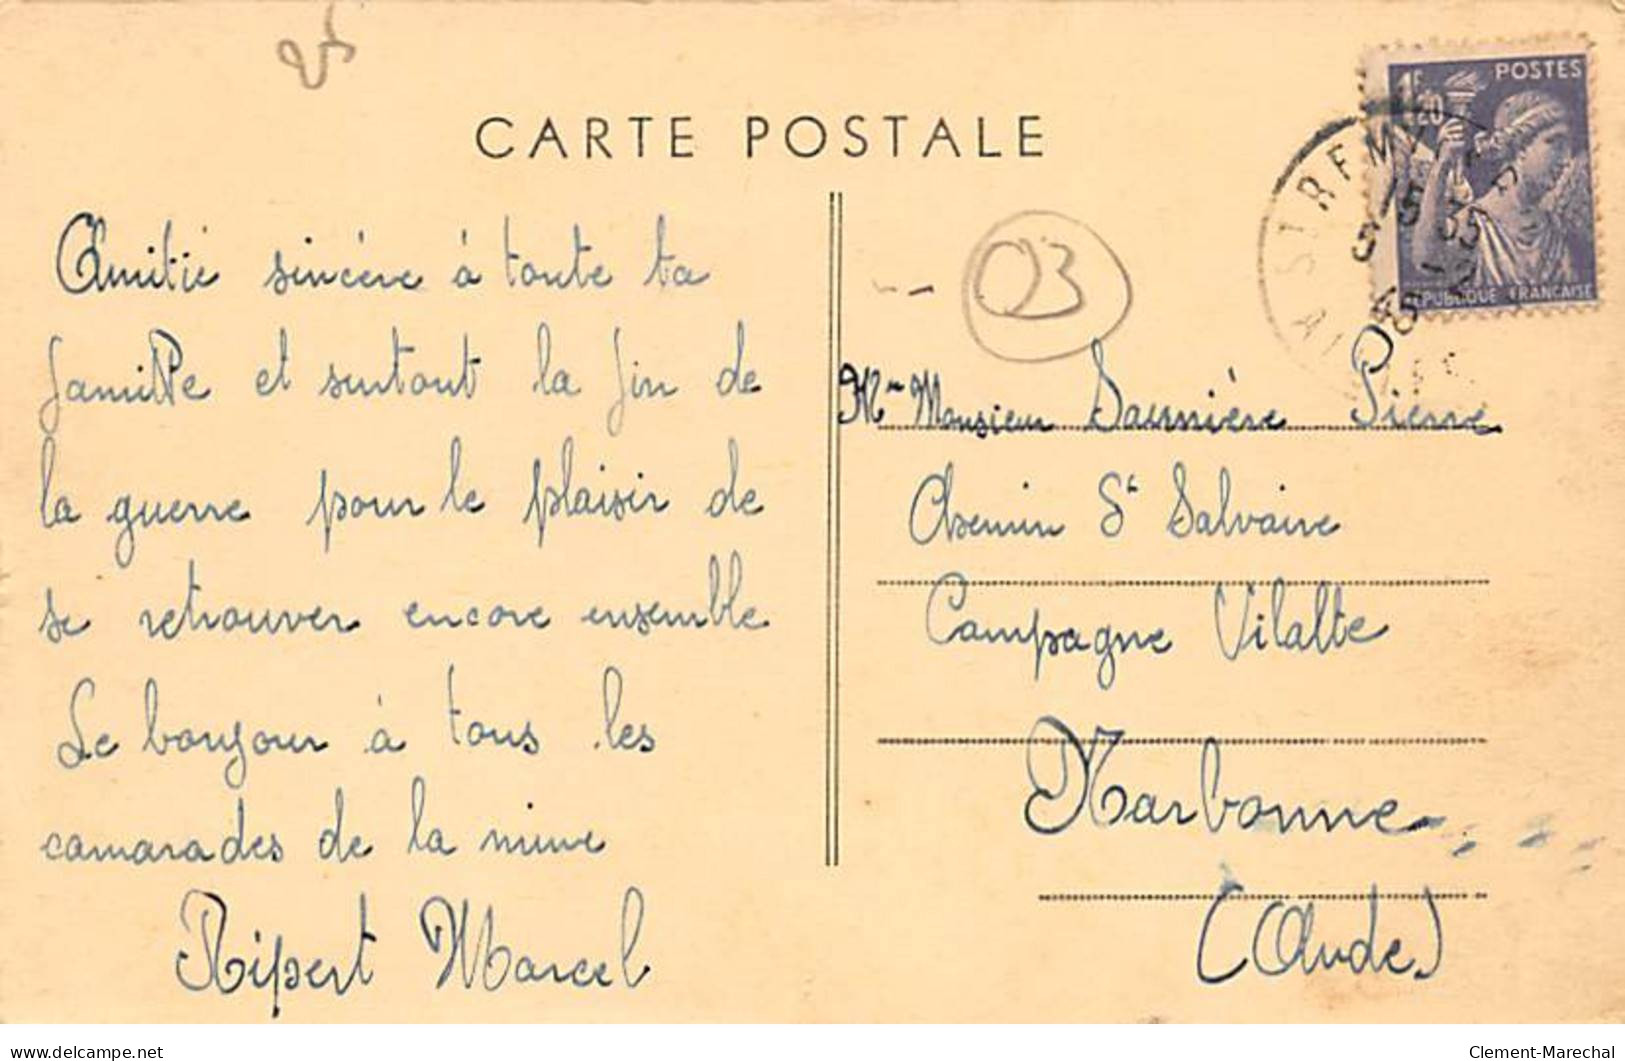 CARTE POSTALE
Amitié sincère à toute ta
famille et surtout la fin de
la guerre pour le plaisir de
se retrouver encore ensemble
Le bonjour à tous les
camarades de la mine
Ripert Marcel
03
POSTES
1F
20
REPUBLIQUE FRANCAISE
15 35
Monsieur Saunière Pierre
Chemin St Salvaire
Campagne Vilalte
Narbonne
(Aude)
delcampe.net
Clement-Marechal